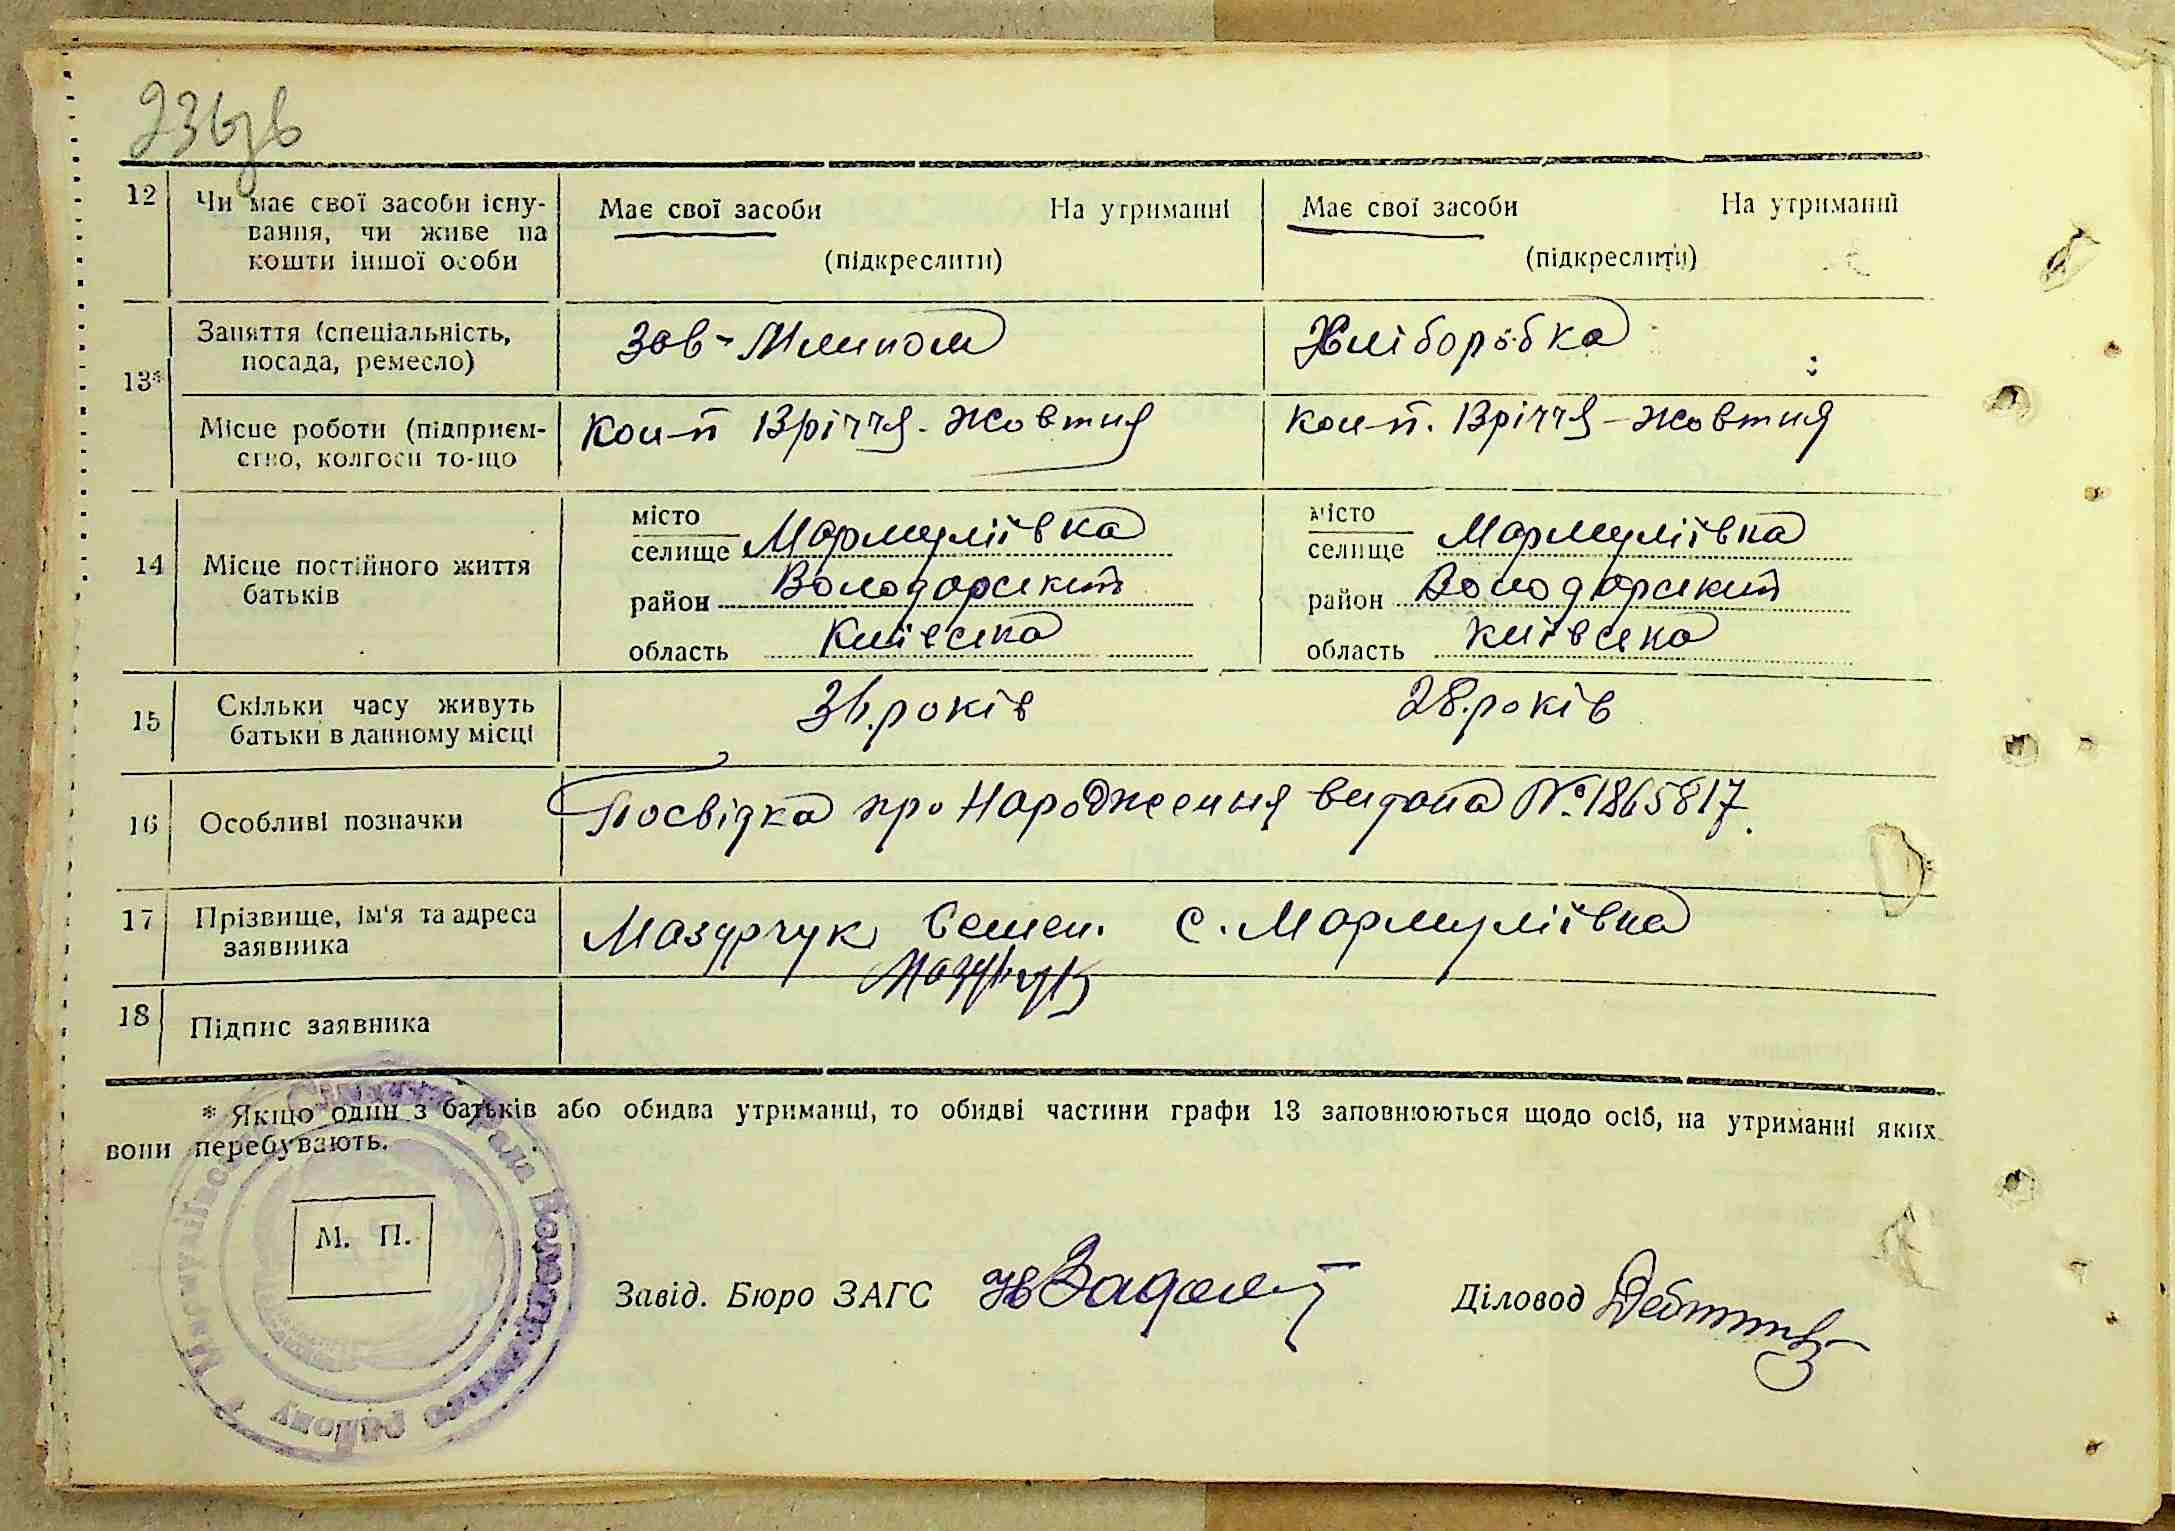 236зв
12 Чи має свої засоби існу-
вання, чи живе на
кошти іншої особи
Має свої засоби На утриманні
(підкреслити)
Має свої засоби На утриманні
(підкреслити)
13*
Заняття (спеціальність,
посада, ремесло)
Зав-Млином
Хліборобка
Місце роботи (підприєм-
ство, колгосп то-що
Кол-п 13річчя-Жовтня
Кол-п. 13річчя-Жовтня
14 Місце постійного життя
батьків
місто
селище Мармуліївка
район Володарський
область Київська
місто
селище Мармуліївка
район Володарський
область Київська
15 Скільки часу живуть
батьки в данному місці
36.років
28.років
16 Особливі позначки
Посвідка про Народження видана №1865817.
17 Прізвище, ім'я та адреса
заявника
Мазурчук Семен. с. Мармуліївка
Мазурчук
18 Підпис заявника
* Якщо один з батьків або обидва утриманці, то обидві частини графи 13 заповнюються щодо осіб, на утриманні яких
вони перебувають.
М. П.
Сільська Рада Володарського району
Завід. Бюро ЗАГС
Діловод